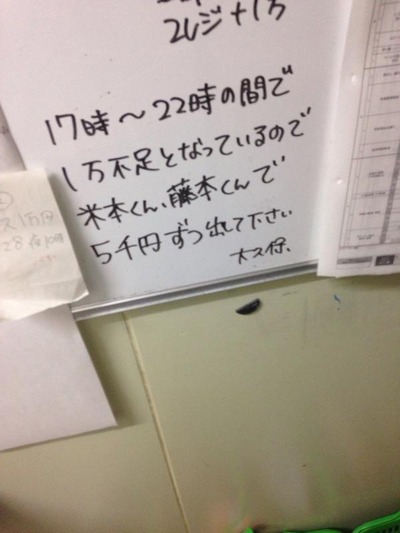 2レジ+1万
17時～22時の間で
1万不足となっているので
米本くん、藤本くんで
5千円ずつ出して下さい
大久保、
ス1万円
28